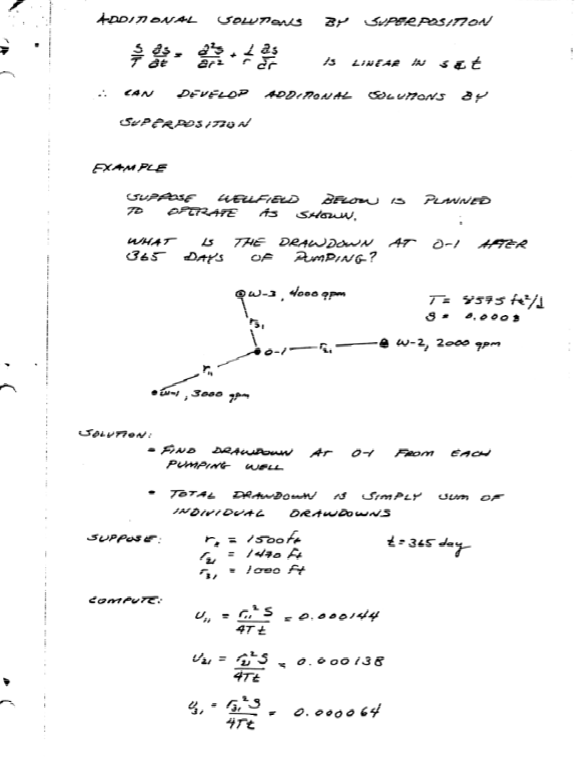 ADDITIONAL SOLUTIONS BY SUPERPOSITION
S/T ∂s/∂t = ∂²s/∂r² + 1/r ∂s/∂r IS LINEAR IN s & t
∴ CAN DEVELOP ADDITIONAL SOLUTIONS BY
SUPERPOSITION
EXAMPLE
SUPPOSE WELLFIELD BELOW IS PLANNED
TO OPERATE AS SHOWN.
WHAT IS THE DRAWDOWN AT O-1 AFTER
365 DAYS OF PUMPING?
W-3, 4000 gpm
T = 8575 ft²/d
S = 0.0003
r₃₁
O-1 r₂₁ W-2, 2000 gpm
r₁₁
W-1, 3000 gpm
SOLUTION:
• FIND DRAWDOWN AT O-1 FROM EACH
PUMPING WELL
• TOTAL DRAWDOWN IS SIMPLY SUM OF
INDIVIDUAL DRAWDOWNS
SUPPOSE: = 1500 ft t = 365 day
r₂₁ = 1470 ft
r₃₁ = 1000 ft
COMPUTE:
U₁₁ = r₁₁² S / 4Tt = 0.000144
U₂₁ = r₂₁² S / 4Tt = 0.000138
U₃₁ = r₃₁² S / 4Tt = 0.000064